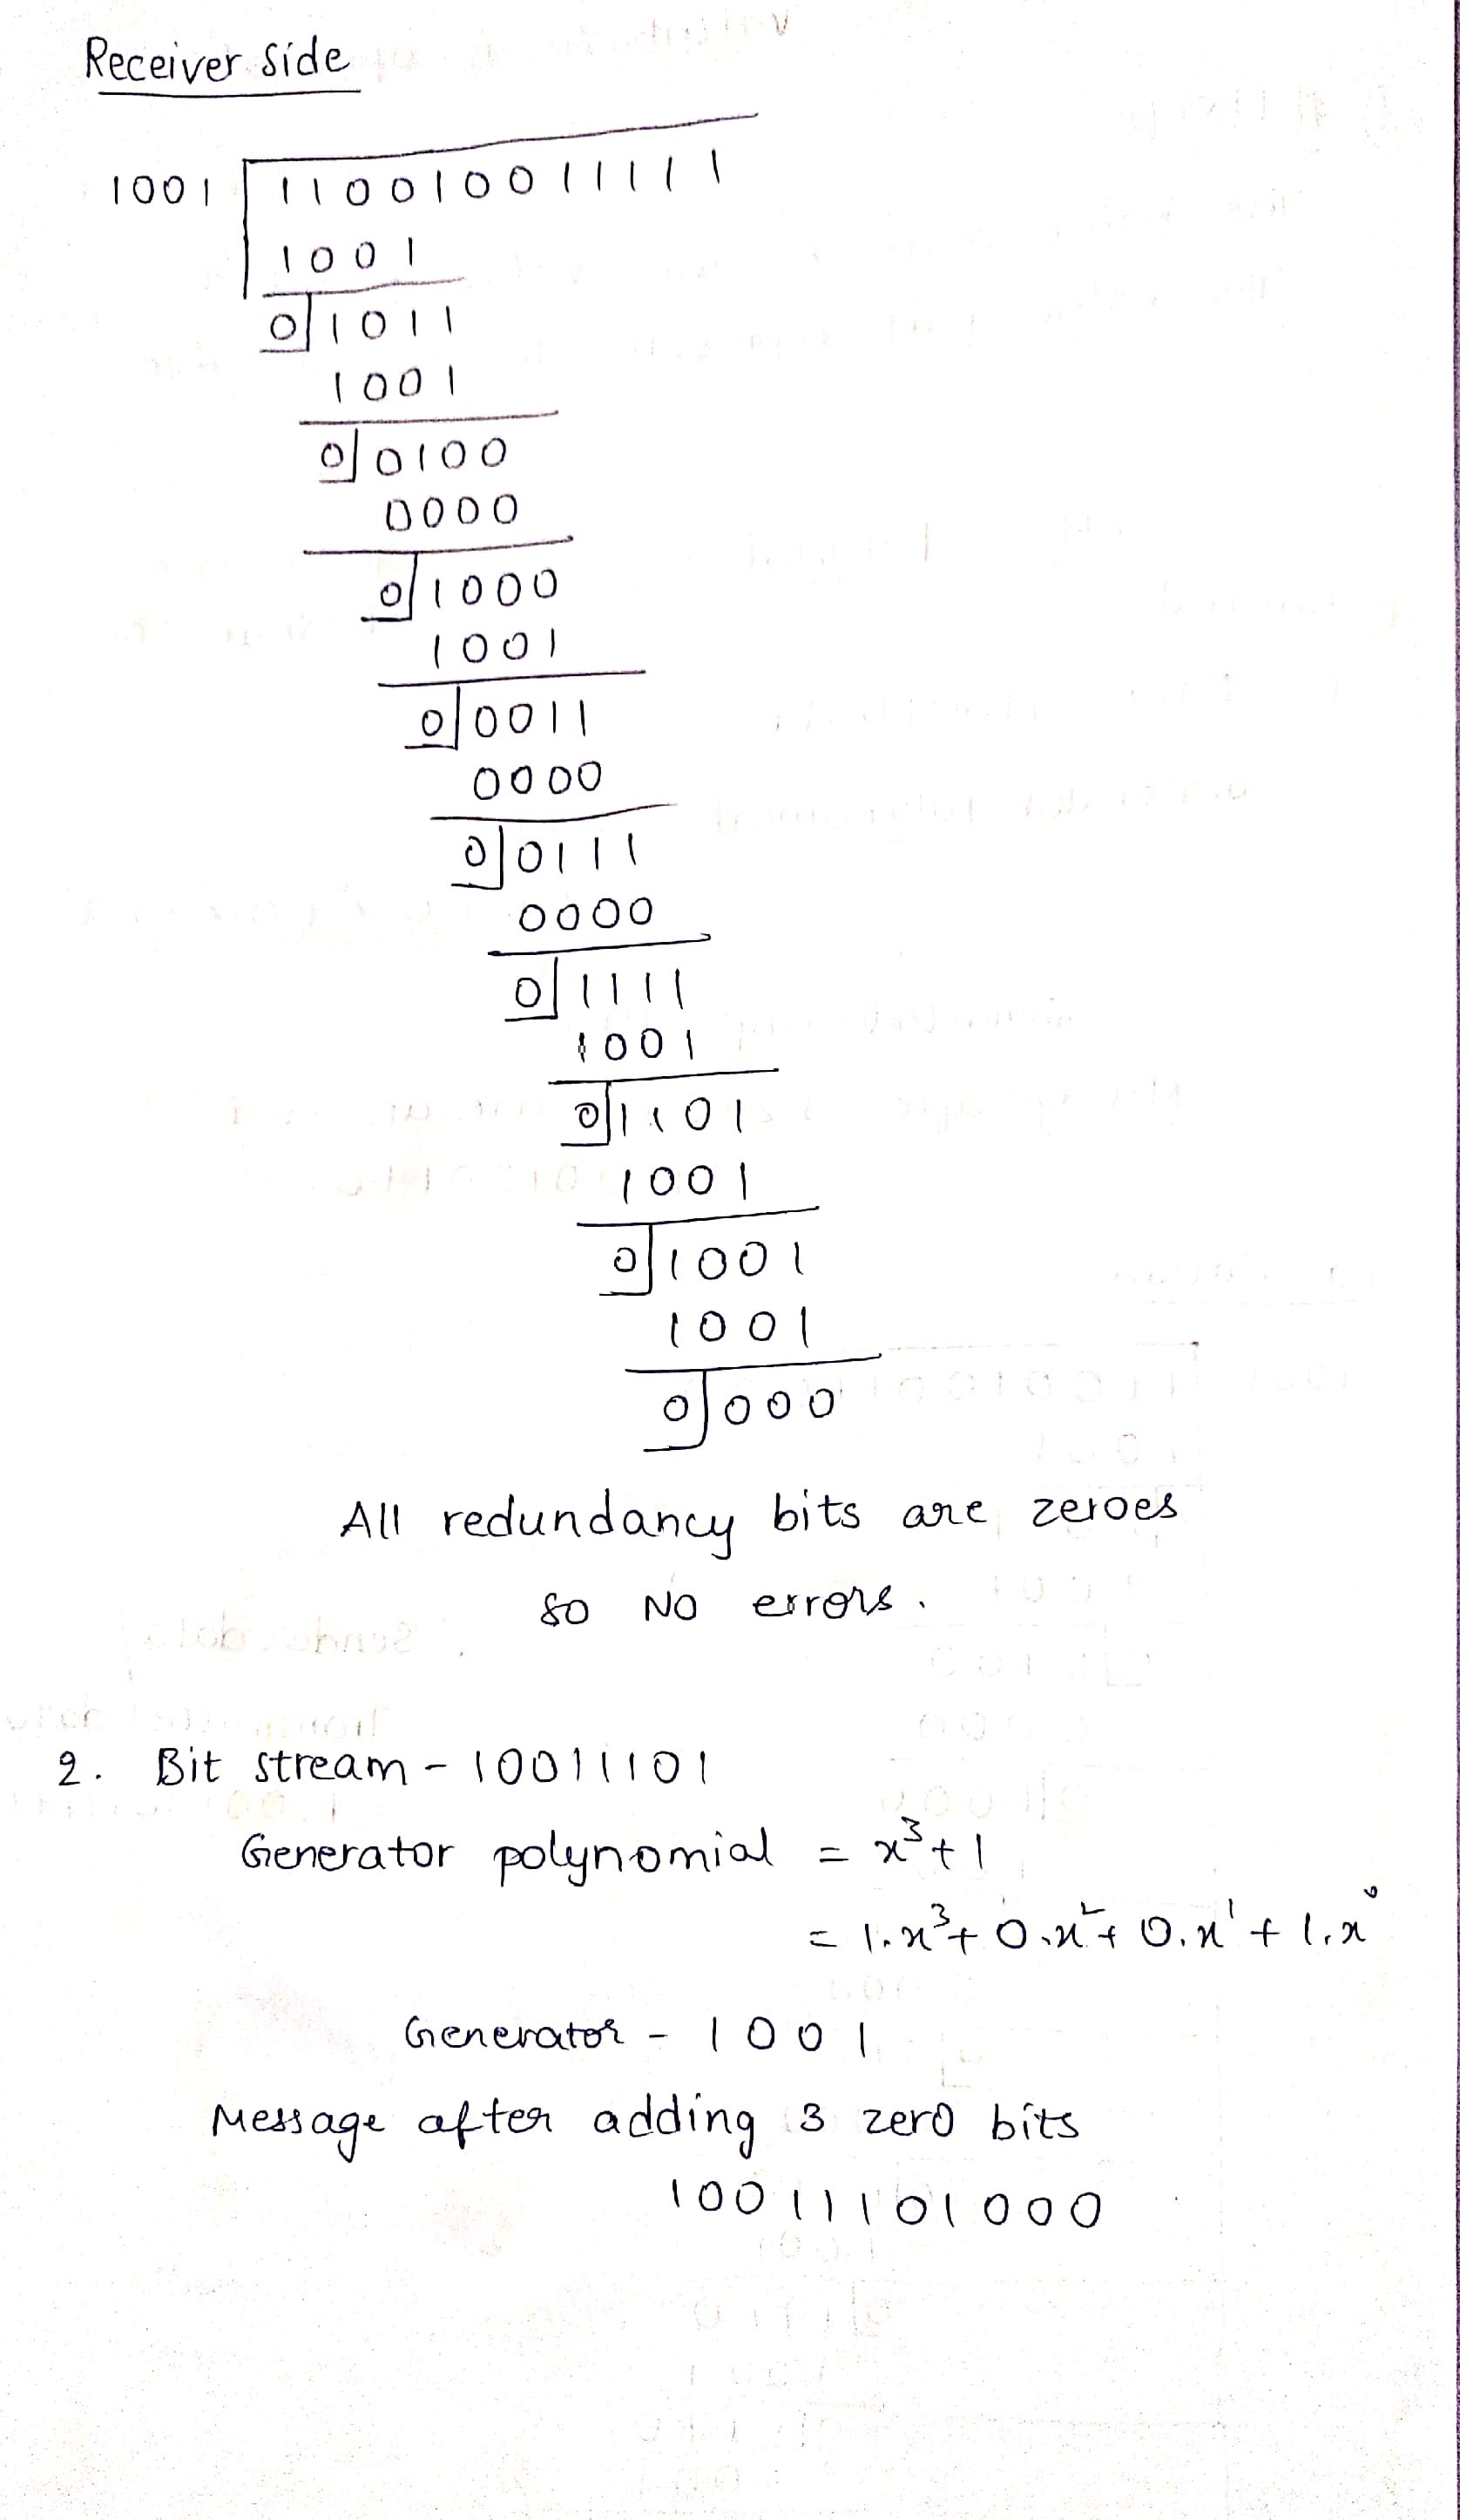 Receiver side
1001 110010011111
1001
01011
1001
00100
0000
01000
1001
00011
0000
00111
0000
01111
1001
01101
1001
01001
1001
0000
All redundancy bits are zeroes
so No errors.
2. Bit stream - 10011101
Generator polynomial = x³+1
= 1.x³+ 0.x²+ 0.x¹ + 1.x⁰
Generator - 1001
Message after adding 3 zero bits
10011101000